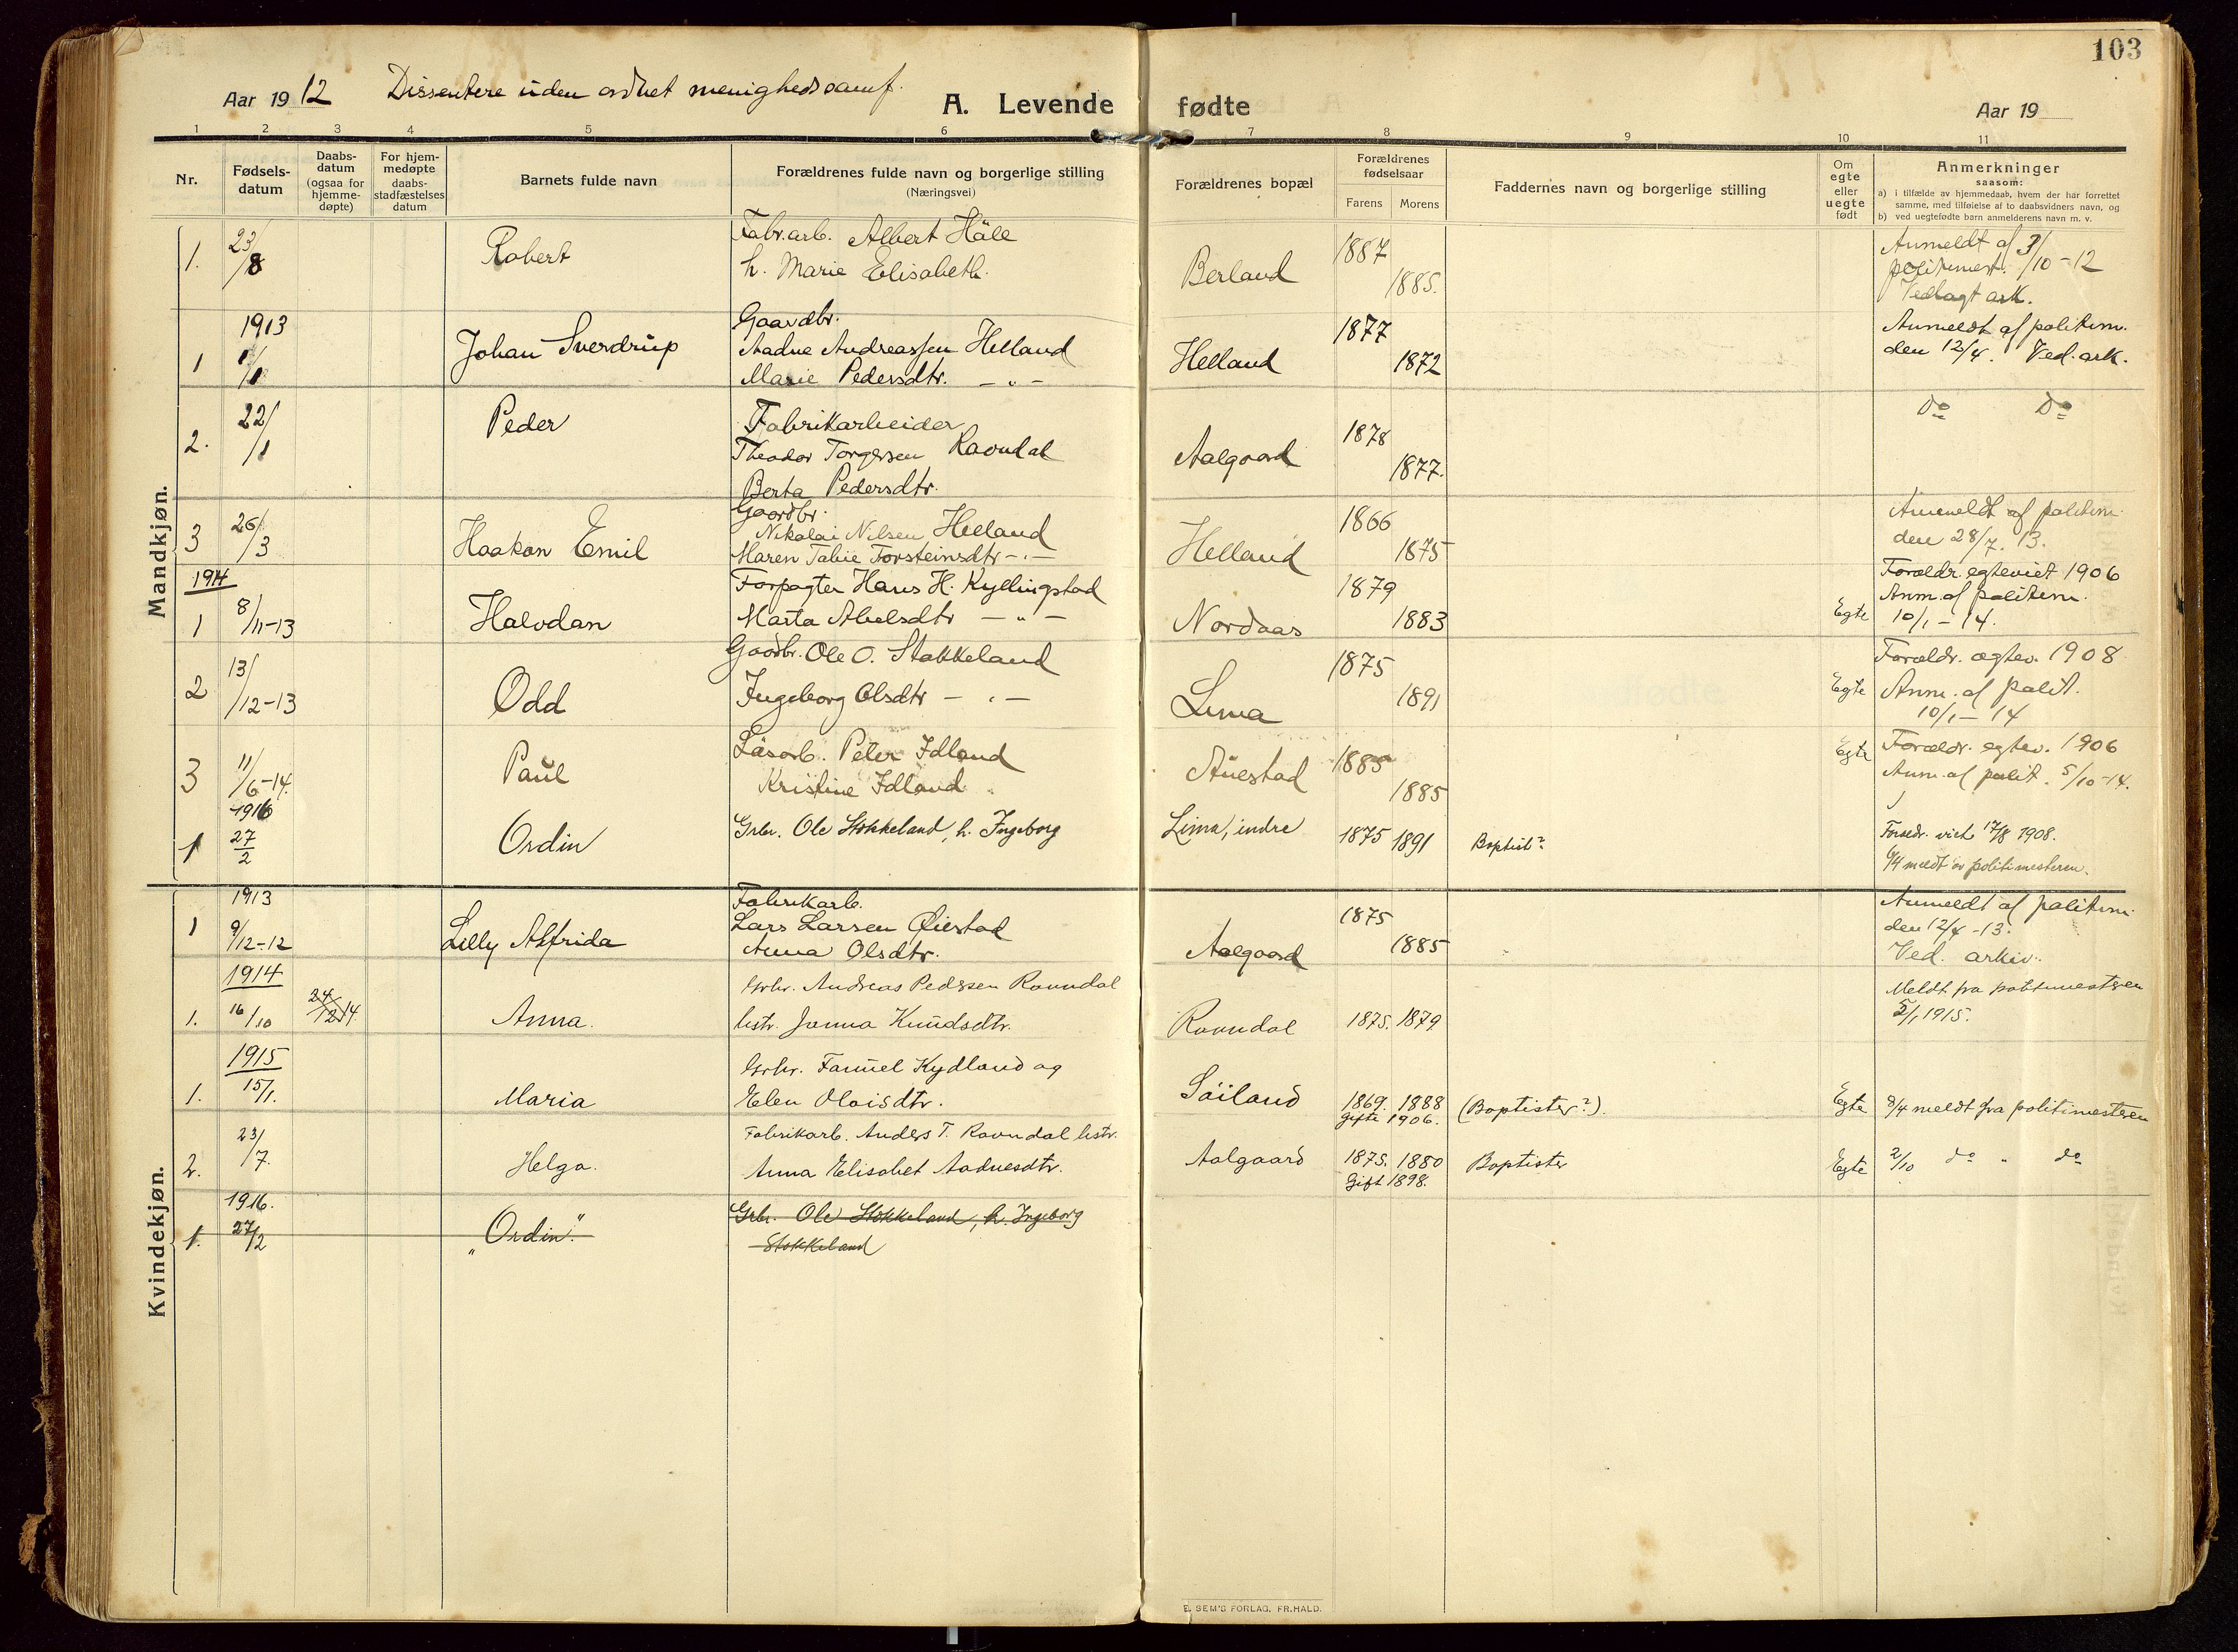 103
Aar 1912 Dissentere uden ordnet menighedssamf.
A. Levende fødte
Aar 19
1 2 3 4 5 6 7 8 9 10 11
Nr.
Fødsels-
datum
Daabs-
datum
(ogsaa for
hjemme-
døpte)
For hjem-
medøpte
daabs-
stadfæstelses
datum
Barnets fulde navn
Forældrenes fulde navn og borgerlige stilling
(Næringsvei)
Forældrenes bopæl
Forældrenes
fødselsaar
Farens Morens
Faddernes navn og borgerlige stilling
Om
egte
eller
uegte
født
Anmerkninger
saasom:
a) i tilfælde av hjemmedaab, hvem der har forrettet
samme, med tilføielse af to daabsvidners navn, og
b) ved uegtefødte barn anmelderens navn m. v.
Mandkjøn.
1. 23/8 Robert
Fabr.arb. Albert Häll
h. Marie Elisabeth.
Berland 1887 1885.
Anmeldt af 3/10-12
politimest.
Vedlagt ark.
1913
1 1/1 Johan Sverdrup
Gaardbr.
Aadne Andreassen Helland
Marie Pedersdtr. - " -
Helland 1877 1872
Anmeldt af politim.
den 12/4. Ved. ark.
2. 22/1 Peder
Fabrikarbeider
Theodor Torgersen Ravndal
Berta Pedersdtr.
Aalgaard 1878 1877.
Do Do
3 26/3 Haakon Emil
Gaardbr.
Nikolai Nilsen Helland
Maren Torsteinsdtr - " -
Helland 1866 1875
Anmeldt af politim.
den 28/7. 13.
1914
1 8/11-13 Halvdan
Forpagter Hans H. Kyllingstad
Marta Abelsdtr - " -
Nordaas 1879 1883
Egte
Forældr. egteviet 1906
Anm. af politim.
10/1-14.
2 13/12-13 Odd
Gaardbr. Ole O. Stokkeland
Ingeborg Olsdtr - " -
Lima 1875 1891
Egte
Forældr. egtev. 1908
Anm. af polit.
10/1-14
3 11/6-14. Paul
Løsarb. Peter Idland
Kristine Idland
Auestad 1885 1885
Egte
Forældr. egtev. 1906
Anm. af polit. 5/10-14.
1916
1 27/2 Ordin
Grbr. Ole Stokkeland, h. Ingeborg
Lima, indre 1875 1891 Baptist?
Foreldr. viet 17/8 1908.
meldt av politimesteren.
Kvindekjøn.
1913
1 9/12-12 Lilly Alfrida
Fabrikarb.
Lars Larsen Øiestad
Anna Olsdtr.
Aalgaard 1875 1885
Anmeldt af politim.
den 12/4-13.
Ved. arkiv.
1914
1. 16/10 24/12 14 Anna.
Grbr. Andreas Pedersen Ravndal
hstr. Janna Knudsdtr.
Ravndal 1875. 1879
Meldt fra politimesteren
5/1 1915.
1915
1. 15/1. Maria
Grbr. Kydland og
Elen Olaisdtr.
Søiland 1869. 1888 (Baptister?).
Gifte 1906.
Egte 8/4 meldt fra politimesteren
2. 23/7. Helga.
Fabrikarb. Anders T. Ravndal hstr.
Anna Elisabet Aadnesdtr.
Aalgaard 1875. 1880 Baptister
Gift 1898.
Egte 2/10 do " do
1916.
1. 27/2 "Ordin".
Grbr. Ole Stokkeland, h. Ingeborg
Stokkeland
E. SEM'S FORLAG. FR.HALD.